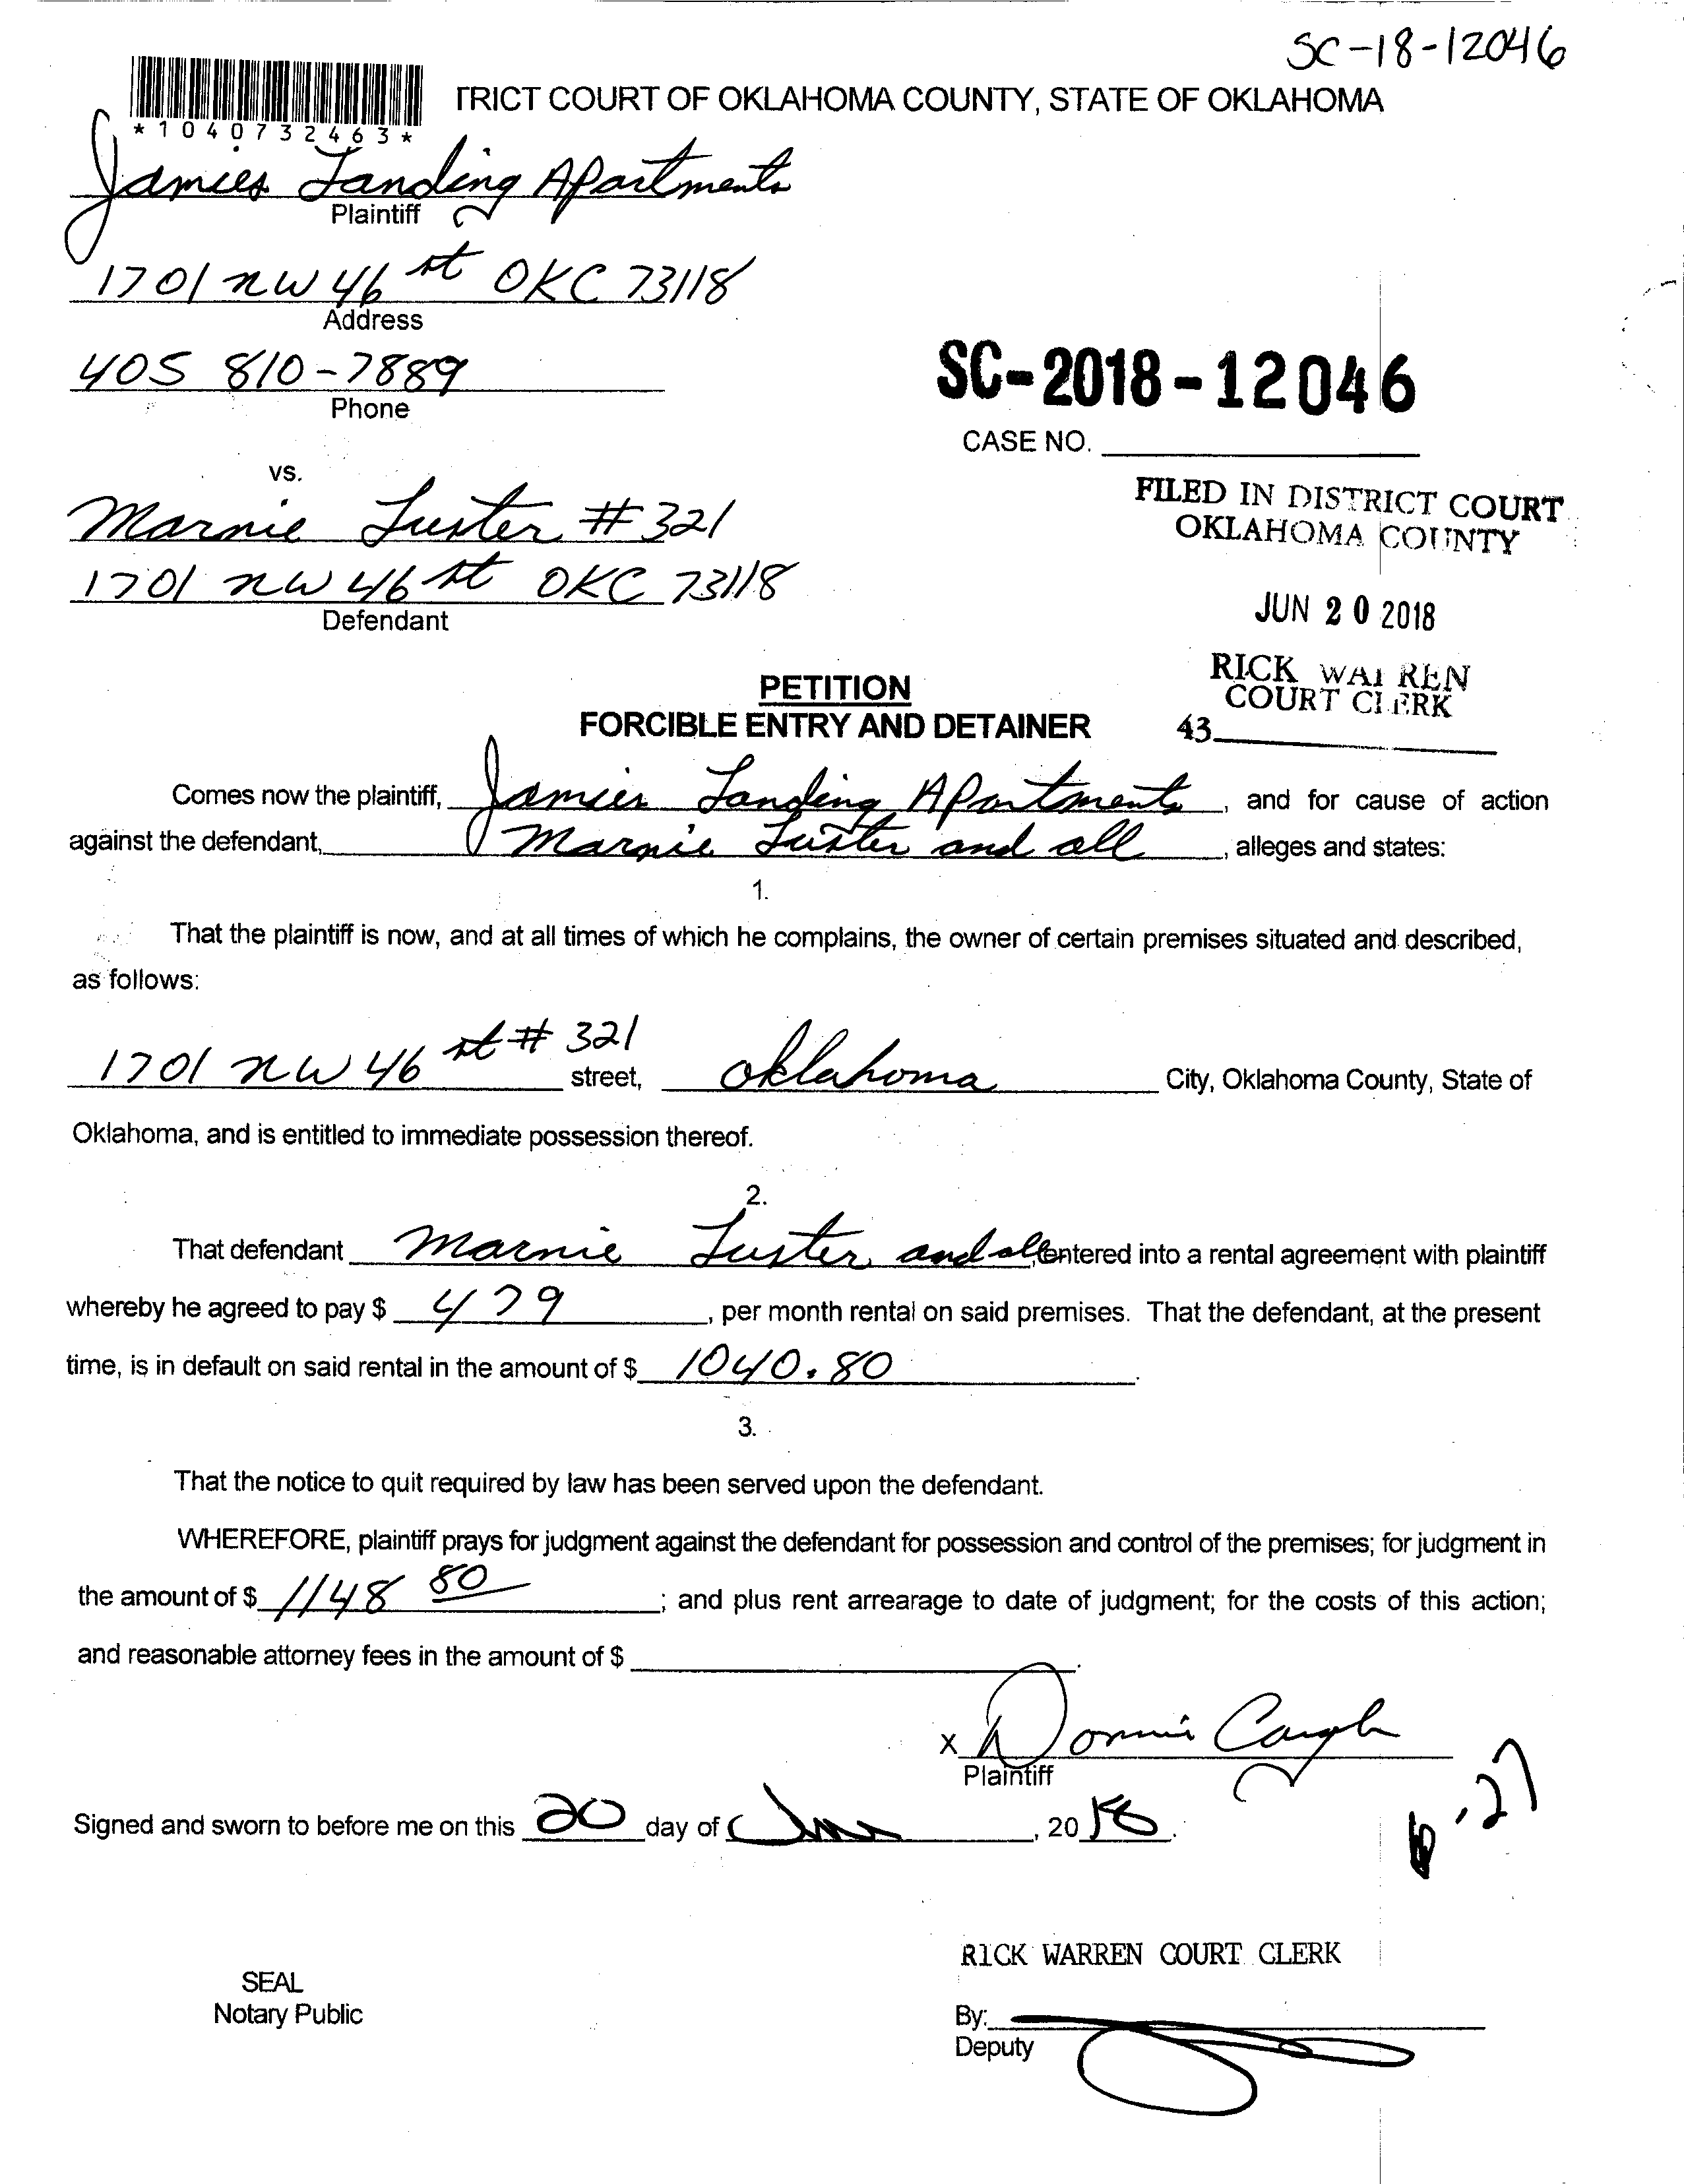 SC-18-12046
*1040732463*
TRICT COURT OF OKLAHOMA COUNTY, STATE OF OKLAHOMA
Jamies Landing Apartments
Plaintiff
1701 NW 46 st OKC 73118
Address
405 810-7889
Phone
SC-2018-12046
CASE NO.
vs.
Marnie Luster #321
1701 NW 46 st OKC 73118
Defendant
FILED IN DISTRICT COURT
OKLAHOMA COUNTY
JUN 20 2018
RICK WARREN
COURT CLERK
43
PETITION
FORCIBLE ENTRY AND DETAINER
Comes now the plaintiff, Jamies Landing Apartments, and for cause of action
against the defendant, Marnie Luster and all, alleges and states:
1.
That the plaintiff is now, and at all times of which he complains, the owner of certain premises situated and described,
as follows:
1701 NW 46 st # 321 street, Oklahoma City, Oklahoma County, State of
Oklahoma, and is entitled to immediate possession thereof.
2.
That defendant Marnie Luster and all, entered into a rental agreement with plaintiff
whereby he agreed to pay $ 479, per month rental on said premises. That the defendant, at the present
time, is in default on said rental in the amount of $ 1040.80.
3.
That the notice to quit required by law has been served upon the defendant.
WHEREFORE, plaintiff prays for judgment against the defendant for possession and control of the premises; for judgment in
the amount of $ 1148 80; and plus rent arrearage to date of judgment; for the costs of this action;
and reasonable attorney fees in the amount of $ .
X Donni
Plaintiff
Signed and sworn to before me on this 20 day of June, 2018.
6.27
RICK WARREN COURT CLERK
SEAL
Notary Public
By:
Deputy